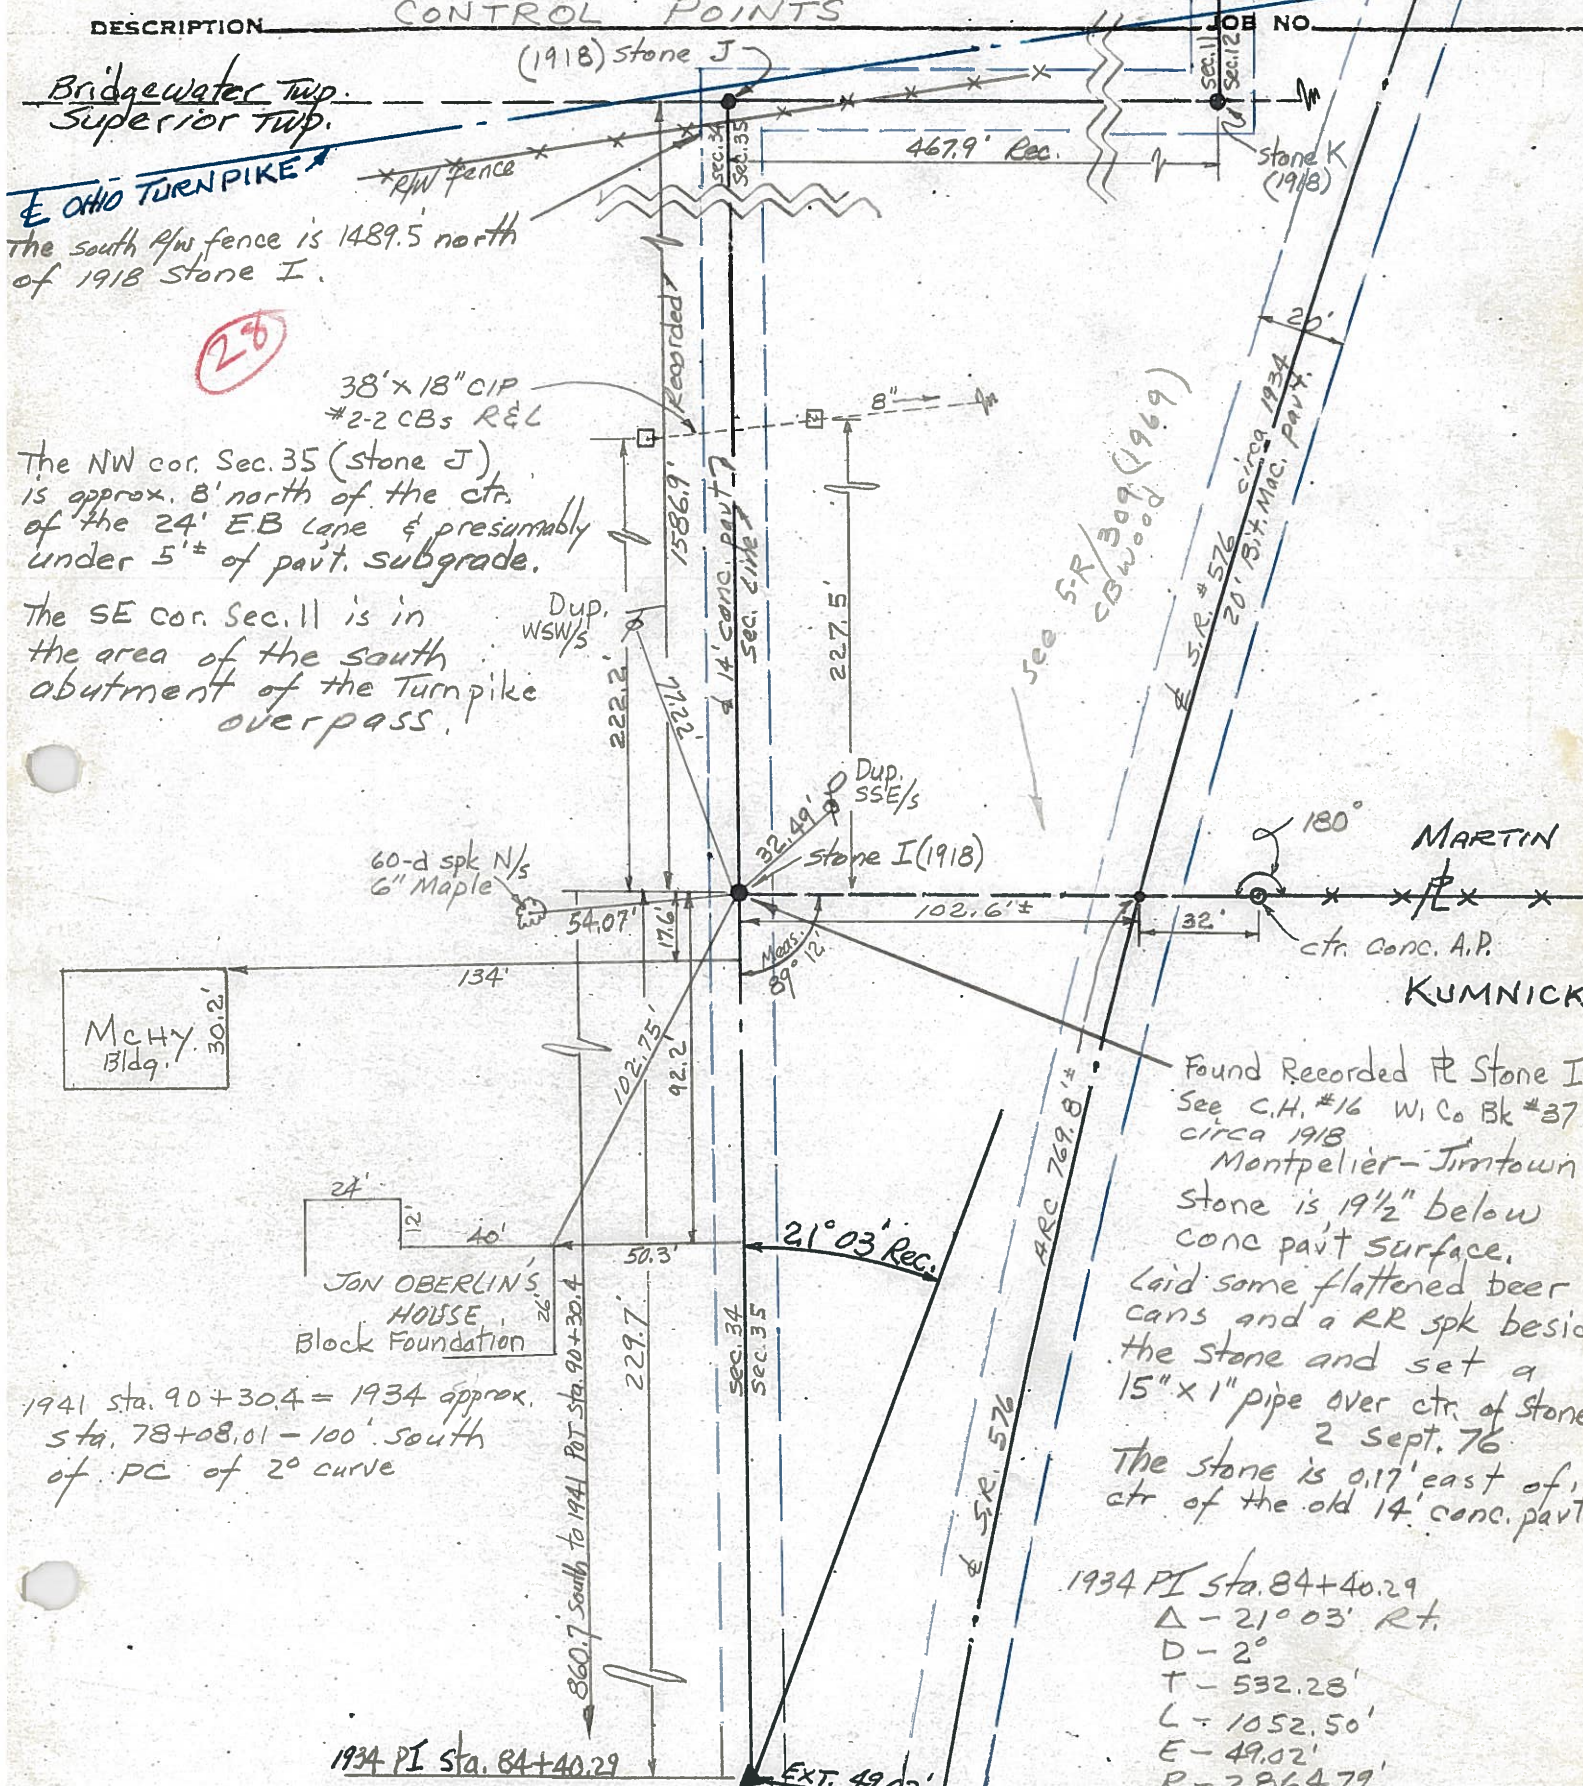 CONTROL POINTS
DESCRIPTION
JOB NO.
(1918) stone J
Bridgewater Twp.
Superior Twp.
℄ OHIO TURNPIKE
R/W fence
sec. 34
sec. 35
sec. 11
sec. 12
467.9' Rec.
stone K
(1918)
The south R/W fence is 1489.5 north
of 1918 Stone I.
28
38' x 18" CIP
#2-2 CBs R&L
8"
20'
Recorded
1586.9'
The NW cor. Sec. 35 (stone J)
is approx. 8' north of the ctr.
of the 24' E.B Lane & presumably
under 5'± of pav't. subgrade.
The SE cor. Sec. 11 is in
the area of the south
abutment of the Turnpike
overpass.
Dup.
WSW/s
222.2'
℄ 14' conc. pav't
sec. line
227.5'
see S-R/309 (1969)
CB Wood
℄ S.R. #576 circa 1934
20' Bit. Mac. pav't.
Dup.
SSE/s
32.49'
stone I (1918)
60-d spk N/s
6" Maple
54.07'
17.6'
102.6'±
32'
180°
MARTIN
℄
ctr. conc. A.P.
KUMNICK
Meas.
89° 12'
134'
McHY.
Bldg.
30.2'
102.75'
92.2'
Found Recorded ℄ Stone I
See C.H. #16 W. Co Bk #37
circa 1918
Montpelier-Jimtown
stone is 19½" below
conc pav't surface.
Laid some flattened beer
cans and a RR spk besid
the stone and set a
15" x 1" pipe over ctr. of stone
2 Sept. 76
The stone is 0.17' east of
ctr of the old 14' conc. pav't
ARC 769.8'±
24'
12'
40'
50.3'
21° 03' Rec.
JON OBERLIN'S
HOUSE
Block Foundation
26'
229.7'
sec. 34
sec. 35
860.7' south to 1941 POT Sta. 90+30.4
1941 sta. 90+30.4 = 1934 approx.
sta. 78+08.01 - 100' south
of PC of 2° curve
℄ S.R. 576
1934 PI sta. 84+40.29
Δ - 21° 03' Rt.
D - 2°
T - 532.28'
L - 1052.50'
E - 49.02'
R - 2864.79'
1934 PI sta. 84+40.29
EXT. 49.02'